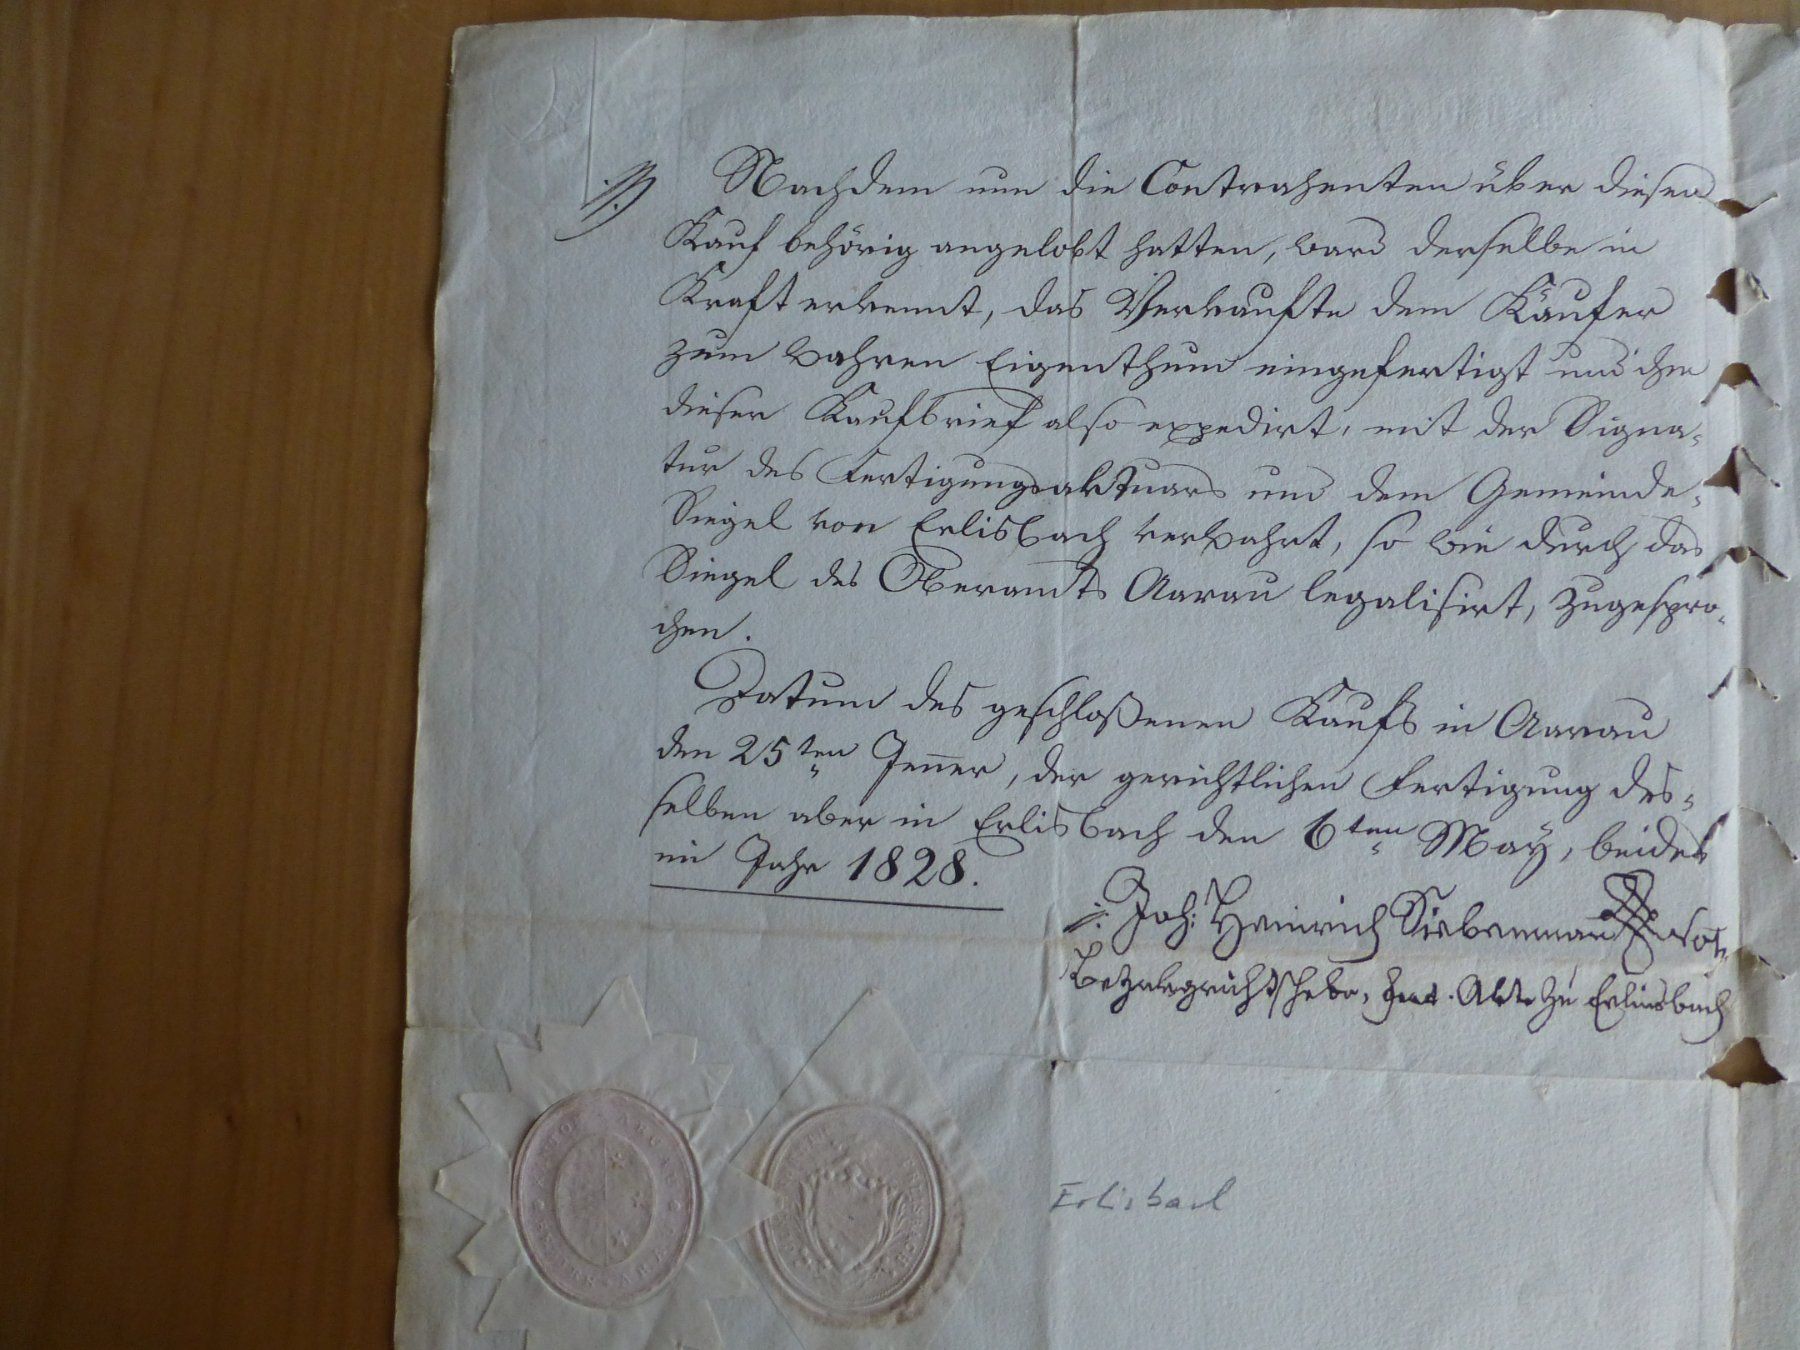 Nachdem nun die Contrahenten über diesen
Kauf behörig angelobt hatten, ward derselbe in
Kraft erkennt, das Verkaufte dem Käufer
zum wahren Eigenthum eingefertigt und ihm
dieser Kaufbrief also expedirt, mit der Signa-
tur des Fertigungsaktuars und dem Gemeinde-
Siegel von Erlisbach verwahrt, so wie durch das
Siegel des Oberamts Aarau legalisirt, zugespro-
chen.
Datum des geschloßenen Kaufs in Aarau
den 25ten Jenner, der gerichtlichen Fertigung des-
selben aber in Erlisbach den 6ten May, beides
im Jahr 1828.
Joh: Heinrich Siebenmann Not.
Bezirksgrichtschrbr, Akt. zu Erlinsbach
Erlisbach